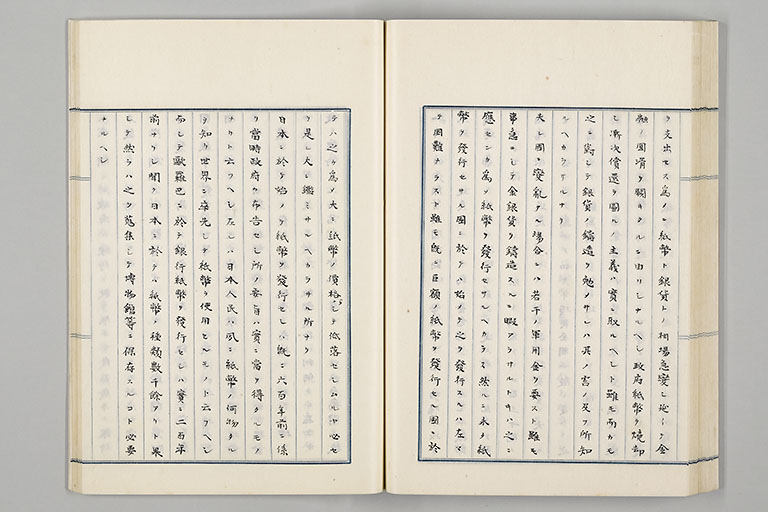 ヲ支出セス爲メニ紙幣ト銀貨トノ相場急變シ延ヒテ金
融ノ圓滑ヲ闕キタルニ由リシナルヘシ政府紙幣ヲ燒却
シ漸次償還ヲ圖ルノ主義ハ實ニ取ルヘシト雖モ而カモ
之ニ等シテ銀貨ノ鑄造ヲ勉メサレハ其ノ害ノ及フ所知
ルヘカラサルナリ
夫レ國ニ變亂アル場合ニハ若干ノ軍用金ヲ要スト雖モ
事急ニシテ金銀貨ヲ鑄造スルニ暇アラサルトキハ之ニ
應センカ爲メ紙幣ヲ發行セサルヘカラス然ルニ未タ紙
幣ヲ發行セサル國ニ於テハ始メテ之ヲ發行スルハ左マ
テ困難ナラスト雖モ既ニ巨額ノ紙幣ヲ發行セル國ニ於
テハ之カ爲メ大ニ紙幣ノ價格ヲシテ低落セシムルヤ必セ
リ是レ大ニ鑑ミサルヘカラサル所ナリ
日本ニ於テ始メテ紙幣ヲ發行セシハ既ニ六百年前ニ係
リ當時政府カ布告セシ所ノ要旨ハ實ニ當ヲ得タルモノ
ナリト云フヘシ左レハ日本人民ハ夙ニ紙幣ノ何物タル
ヲ知リ世界ニ率先シテ紙幣ヲ使用セルモノト云フヘシ
而シテ歐羅巴ニ於テ銀行紙幣ヲ發行セシハ實ニ二百年
前ナリシ聞ク日本ニ於ケル紙幣ノ種類數千餘アリト果
シテ然ラハ之ヲ蒐集シテ博物館等ニ保存スルコト必要
ナルヘシ